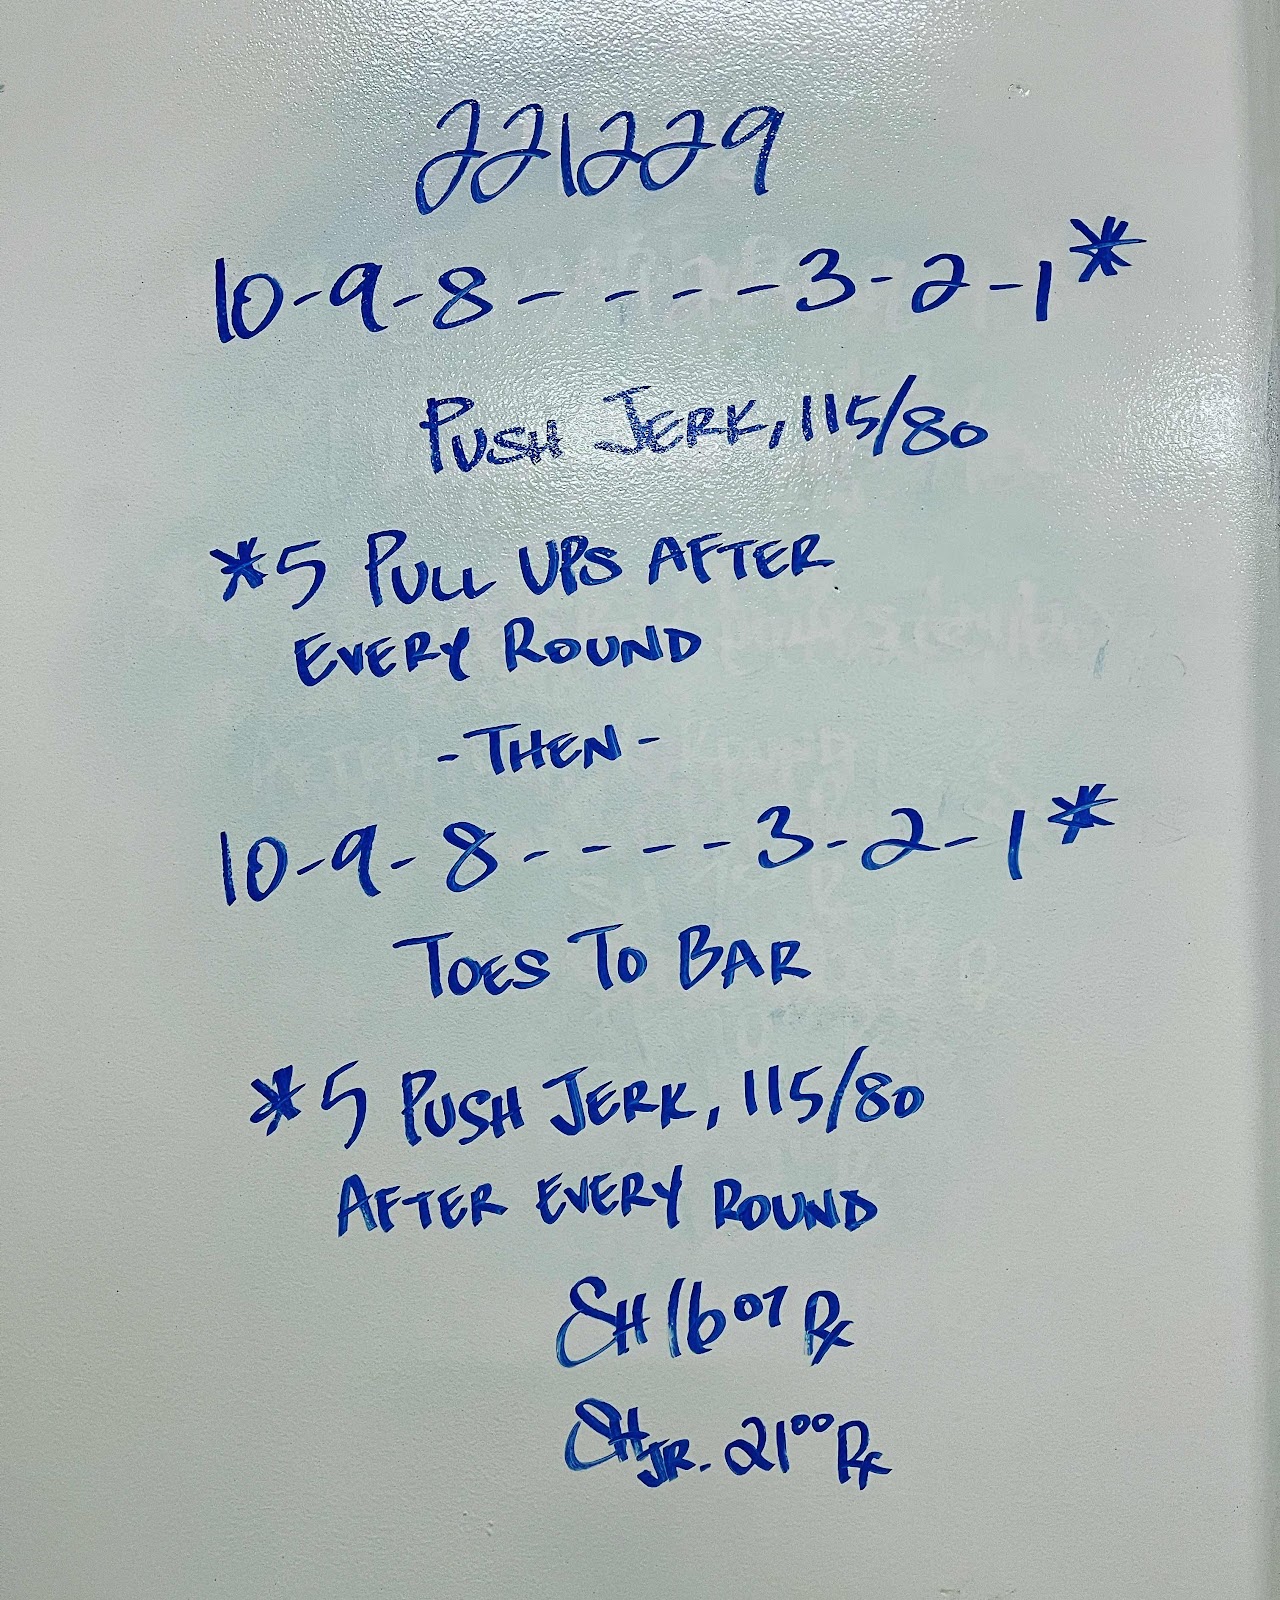 221229
10-9-8-----3-2-1*
PUSH JERK, 115/80
*5 PULL UPS AFTER
EVERY ROUND
-THEN-
10-9-8-----3-2-1*
TOES TO BAR
*5 PUSH JERK, 115/80
AFTER EVERY ROUND
SH 16⁰⁷ Rx
SH JR. 21⁰⁰ Rx